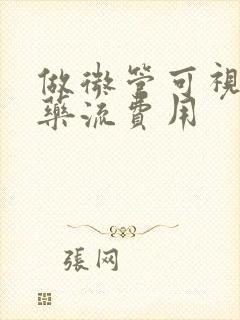 做微管可視
藥流費用
張网